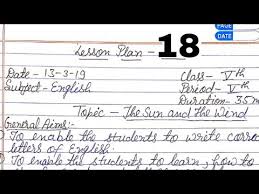 PAGE
DATE
Lesson Plan - 18
Date - 13-3-19 Class - Vth
Subject - English Period - Vth
Duration - 35 m
Topic - The Sun and the Wind
General Aims:-
To enable the students to write corre
letters of English.
To enable the students to learn, how to